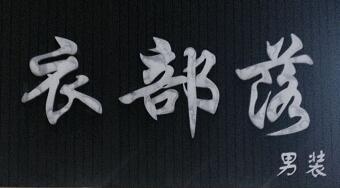 衣部落
男装